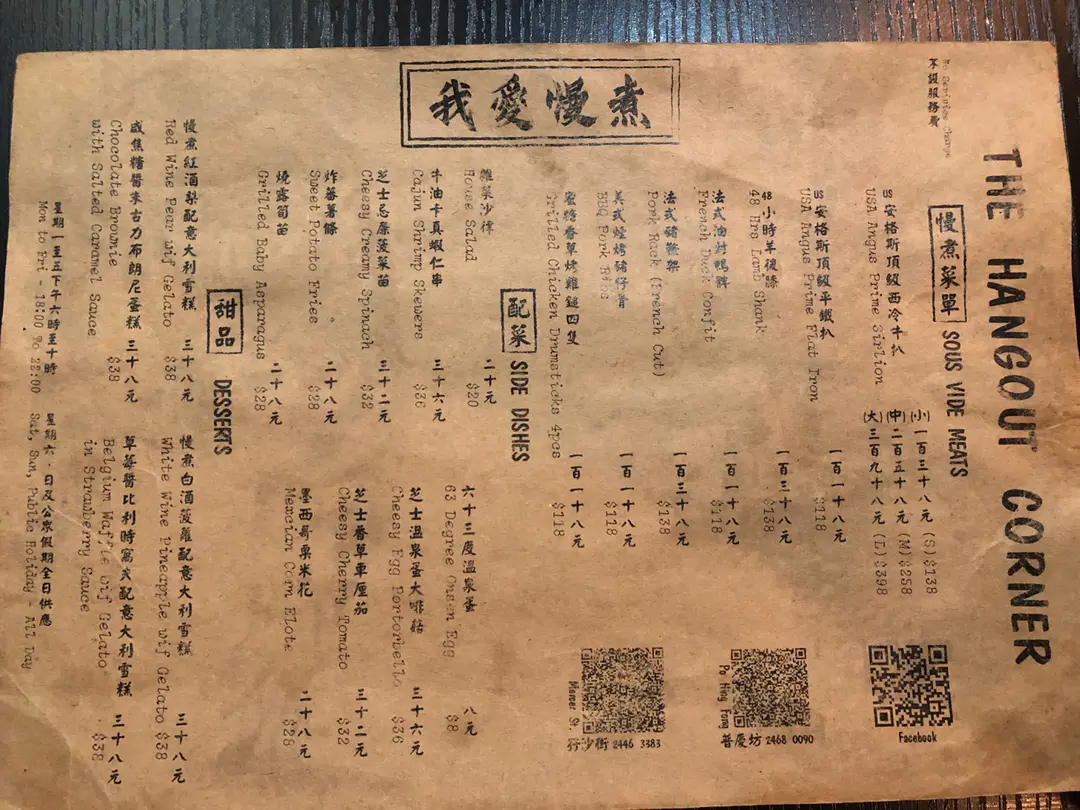 THE HANGOUT CORNER
No Services Charge
不設服務費
慢煮菜單 SOUS VIDE MEATS
US 安格斯頂級西冷牛扒
USA Angus Prime Sirlion
(小) 一百三十八元 (S) $138
(中) 二百五十八元 (M) $258
(大) 三百九十八元 (L) $398
US 安格斯頂級平鐵扒 一百一十八元
USA Angus Prime Flat Iron $118
48 小時羊後膝 一百三十八元
48 Hrs Lamb Shank $138
法式油封鴨髀 一百一十八元
French Duck Confit $118
法式豬鞍架 一百三十八元
Pork Rack (French Cut) $138
美式煙烤豬仔骨 一百一十八元
BBQ Pork Ribs $118
蜜糖香草烤雞鎚四隻 一百一十八元
Grilled Chicken Drumsticks 4pcs $118
Facebook
Po Hing Fong
普慶坊 2468 0090
Mercer St.
孖沙街 2446 3383
我愛慢煮
配菜 SIDE DISHES
雜菜沙律 二十元
House Salad $20
牛油千真蝦仁串 三十六元
Cajun Shrimp Skewers $36
芝士忌廉菠菜苗 三十二元
Cheesy Creamy Spinach $32
炸蕃薯條 二十八元
Sweet Potato Fries $28
燒露筍苗 二十八元
Grilled Baby Asparagus $28
六十三度溫泉蛋 八元
63 Degree Onsen Egg $8
芝士溫泉蛋大啡菇 三十六元
Cheesy Egg Portorbello $36
芝士香草車厘茄 三十二元
Cheesy Cherry Tomato $32
墨西哥粟米花 二十八元
Mexcian Corn Elote $28
甜品 DESSERTS
慢煮紅酒梨配意大利雪糕 三十八元
Red Wine Pear wif Gelato $38
咸焦糖醬朱古力布朗尼蛋糕 三十八元
Chocolate Brownie
with Salted Caramel Sauce $38
慢煮白酒菠蘿配意大利雪糕 三十八元
White Wine Pineapple wif Gelato $38
草莓醬比利時窩夫配意大利雪糕 三十八元
Belgium Waffle wif Gelato
in Strawberry Sauce $38
星期一至五下午六時至十時
Mon to Fri - 18:00 To 22:00
星期六，日及公眾假期全日供應
Sat, Sun, Public Holiday - All Day